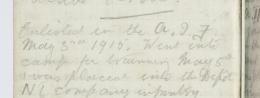 Enlisted in the A. I. F
May 3rd 1915. Went into
camp for training May 5th
I was placed into the Depot
N L Company infantry